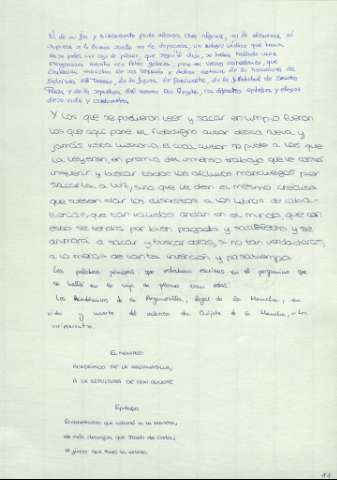 Ni de su fin y acabamiento pudo alcanzar cosa alguna, ni la alcanzara, ni
supiera si la buena suerte no le deparara un antiguo médico que tenía
en su poder una caja de plomo, que según él dijo, se había hallado
pergaminos escritos con letras góticas, pero en versos castellanos, que
contenían muchas de sus hazañas y daban noticia de la hermosura de
Dulcinea del Toboso, de la figura de Rocinante, de la fidelidad de Sancho
Panza y de la sepultura del mesmo Don Quijote, con diferentes epitafios y elogios
de su vida y costumbres.
Y los que se pudieron leer y sacar en limpio fueron
los que aquí pone el fidedigno autor desta nueva y
jamás vista historia. El cual autor no pide a los que
la leyeren, en premio del inmenso trabajo que le costó
inquerir y buscar todos los archivos manchegos por
sacarla a luz, sino que le den el mesmo crédito
que suelen dar los discretos a los libros de caba-
llerías, que tan validos andan en el mundo, que con
esto se tendrá por bien pagado y satisfecho y se
animará a sacar y buscar otras, si no tan verdaderas,
a lo menos de tanta invención y pasatiempo.
Las palabras primeras que estaban escritas en el pergamino que
se halló en la caja de plomo eran estas:
Los Académicos de la Argamasilla, lugar de la Mancha, en
vida y muerte del valeroso don Quijote de la Mancha, hoc
scripserunt.
El Monicongo,
Académico de la Argamasilla,
a la sepultura de Don Quijote
Epitafio
El calvatrueno que adornó a la Mancha
de más despojos que Jasón de Creta;
el juicio que tuvo la veleta